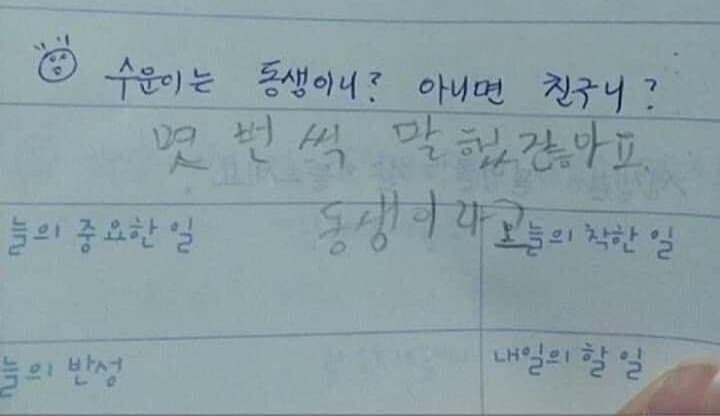 수운이는 동생이니? 아니면 친구니?
몇 번 씩 말 했잖아요
동생이라고
늘의 중요한 일
오늘의 착한 일
늘의 반성
내일의 할 일